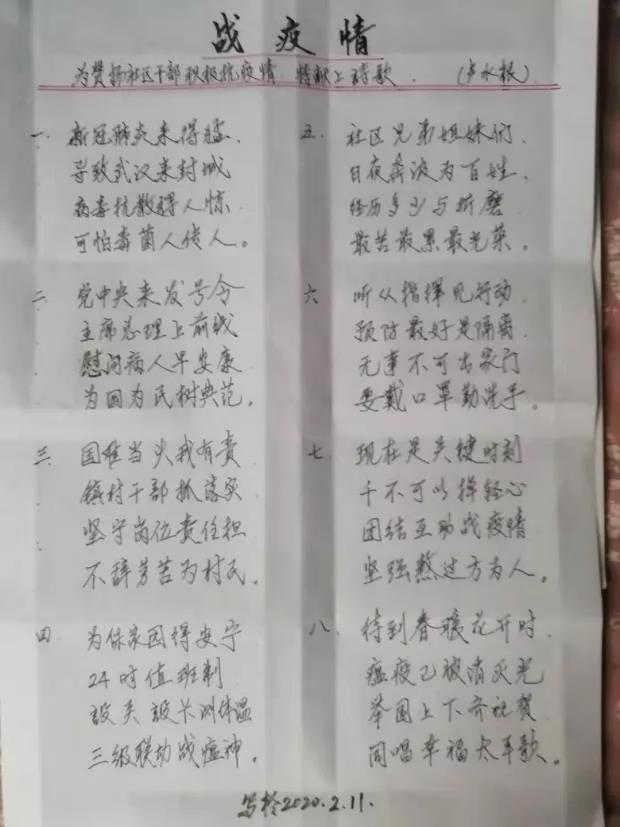 战疫情
为赞扬社区干部积极抗疫情 特献上诗歌. (卢水根)
一、新冠肺炎来得猛
导致武汉来封城
病毒扩散得人惊
可怕毒菌人传人。
二、党中央来发号令
主席总理上前线
慰问病人早安康
为国为民树典范。
三、国难当头我有责
镇村干部抓落实
坚守岗位责任担
不辞劳苦为村民。
四、为保家园得安宁
24时值班制
设关设卡测体温
三级联动战瘟神。
五、社区兄弟姐妹们、
日夜奔波为百姓、
经历多少与折磨
最苦最累最光荣。
六、听从指挥见行动
预防最好是隔离
无事不可出家门
要戴口罩勤洗手。
七、现在是关键时刻
千不可以掉轻心
团结互助战疫情
坚强熬过方为人。
八、待到春暖花开时
瘟疫已被消灭光
举国上下齐祝贺
同唱幸福太平歌。
写於2020.2.11.